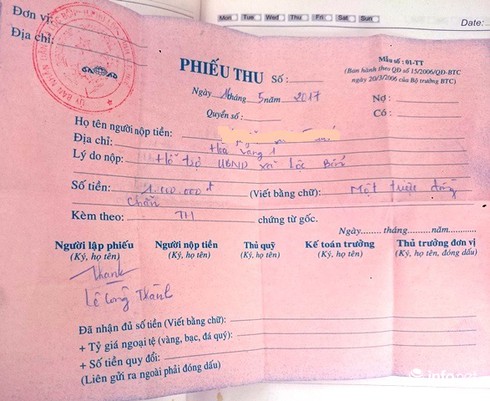 Mon Tue Wed Thu Fri Sat Sun
Date:
Đơn vị:
Địa chỉ:
PHIẾU THU Số :
Mẫu số : 01-TT
(Ban hành theo QĐ số 15/2006/QĐ-BTC
ngày 20/3/2006 của Bộ trưởng BTC)
Ngày tháng 5 năm 2017
Quyển số :
Nợ :
Có :
Họ tên người nộp tiền:
Địa chỉ:
Lý do nộp: Hỗ trợ UBND xã Lộc Bổn
Số tiền: 1.000.000 đ (Viết bằng chữ): Một triệu đồng
Chẵn
Kèm theo: TH chứng từ gốc.
Ngày........ tháng........năm........
Người lập phiếu Người nộp tiền Thủ quỹ Kế toán trưởng Thủ trưởng đơn vị
(Ký, họ tên) (Ký, họ tên) (Ký, họ tên) (Ký, họ tên) (Ký, họ tên, đóng dấu)
Thanh
Lê Công Thành
Đã nhận đủ số tiền (Viết bằng chữ):
+ Tỷ giá ngoại tệ (vàng, bạc, đá quý):
+ Số tiền quy đổi:
(Liên gửi ra ngoài phải đóng dấu)